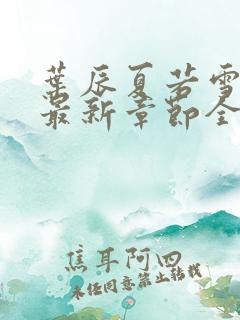 葉辰夏若雪
最新章節全
焦耳阿四
未经同意禁止转载